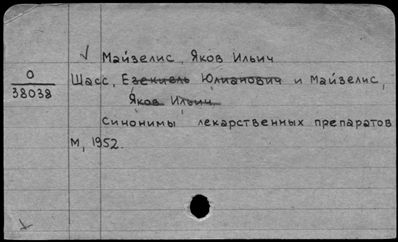 √ Майзелис, Яков Ильич
0
38038
Шасс, Езекиель Юлианович и Майзелис,
Яков Ильич
Синонимы лекарственных препаратов
М, 1952.